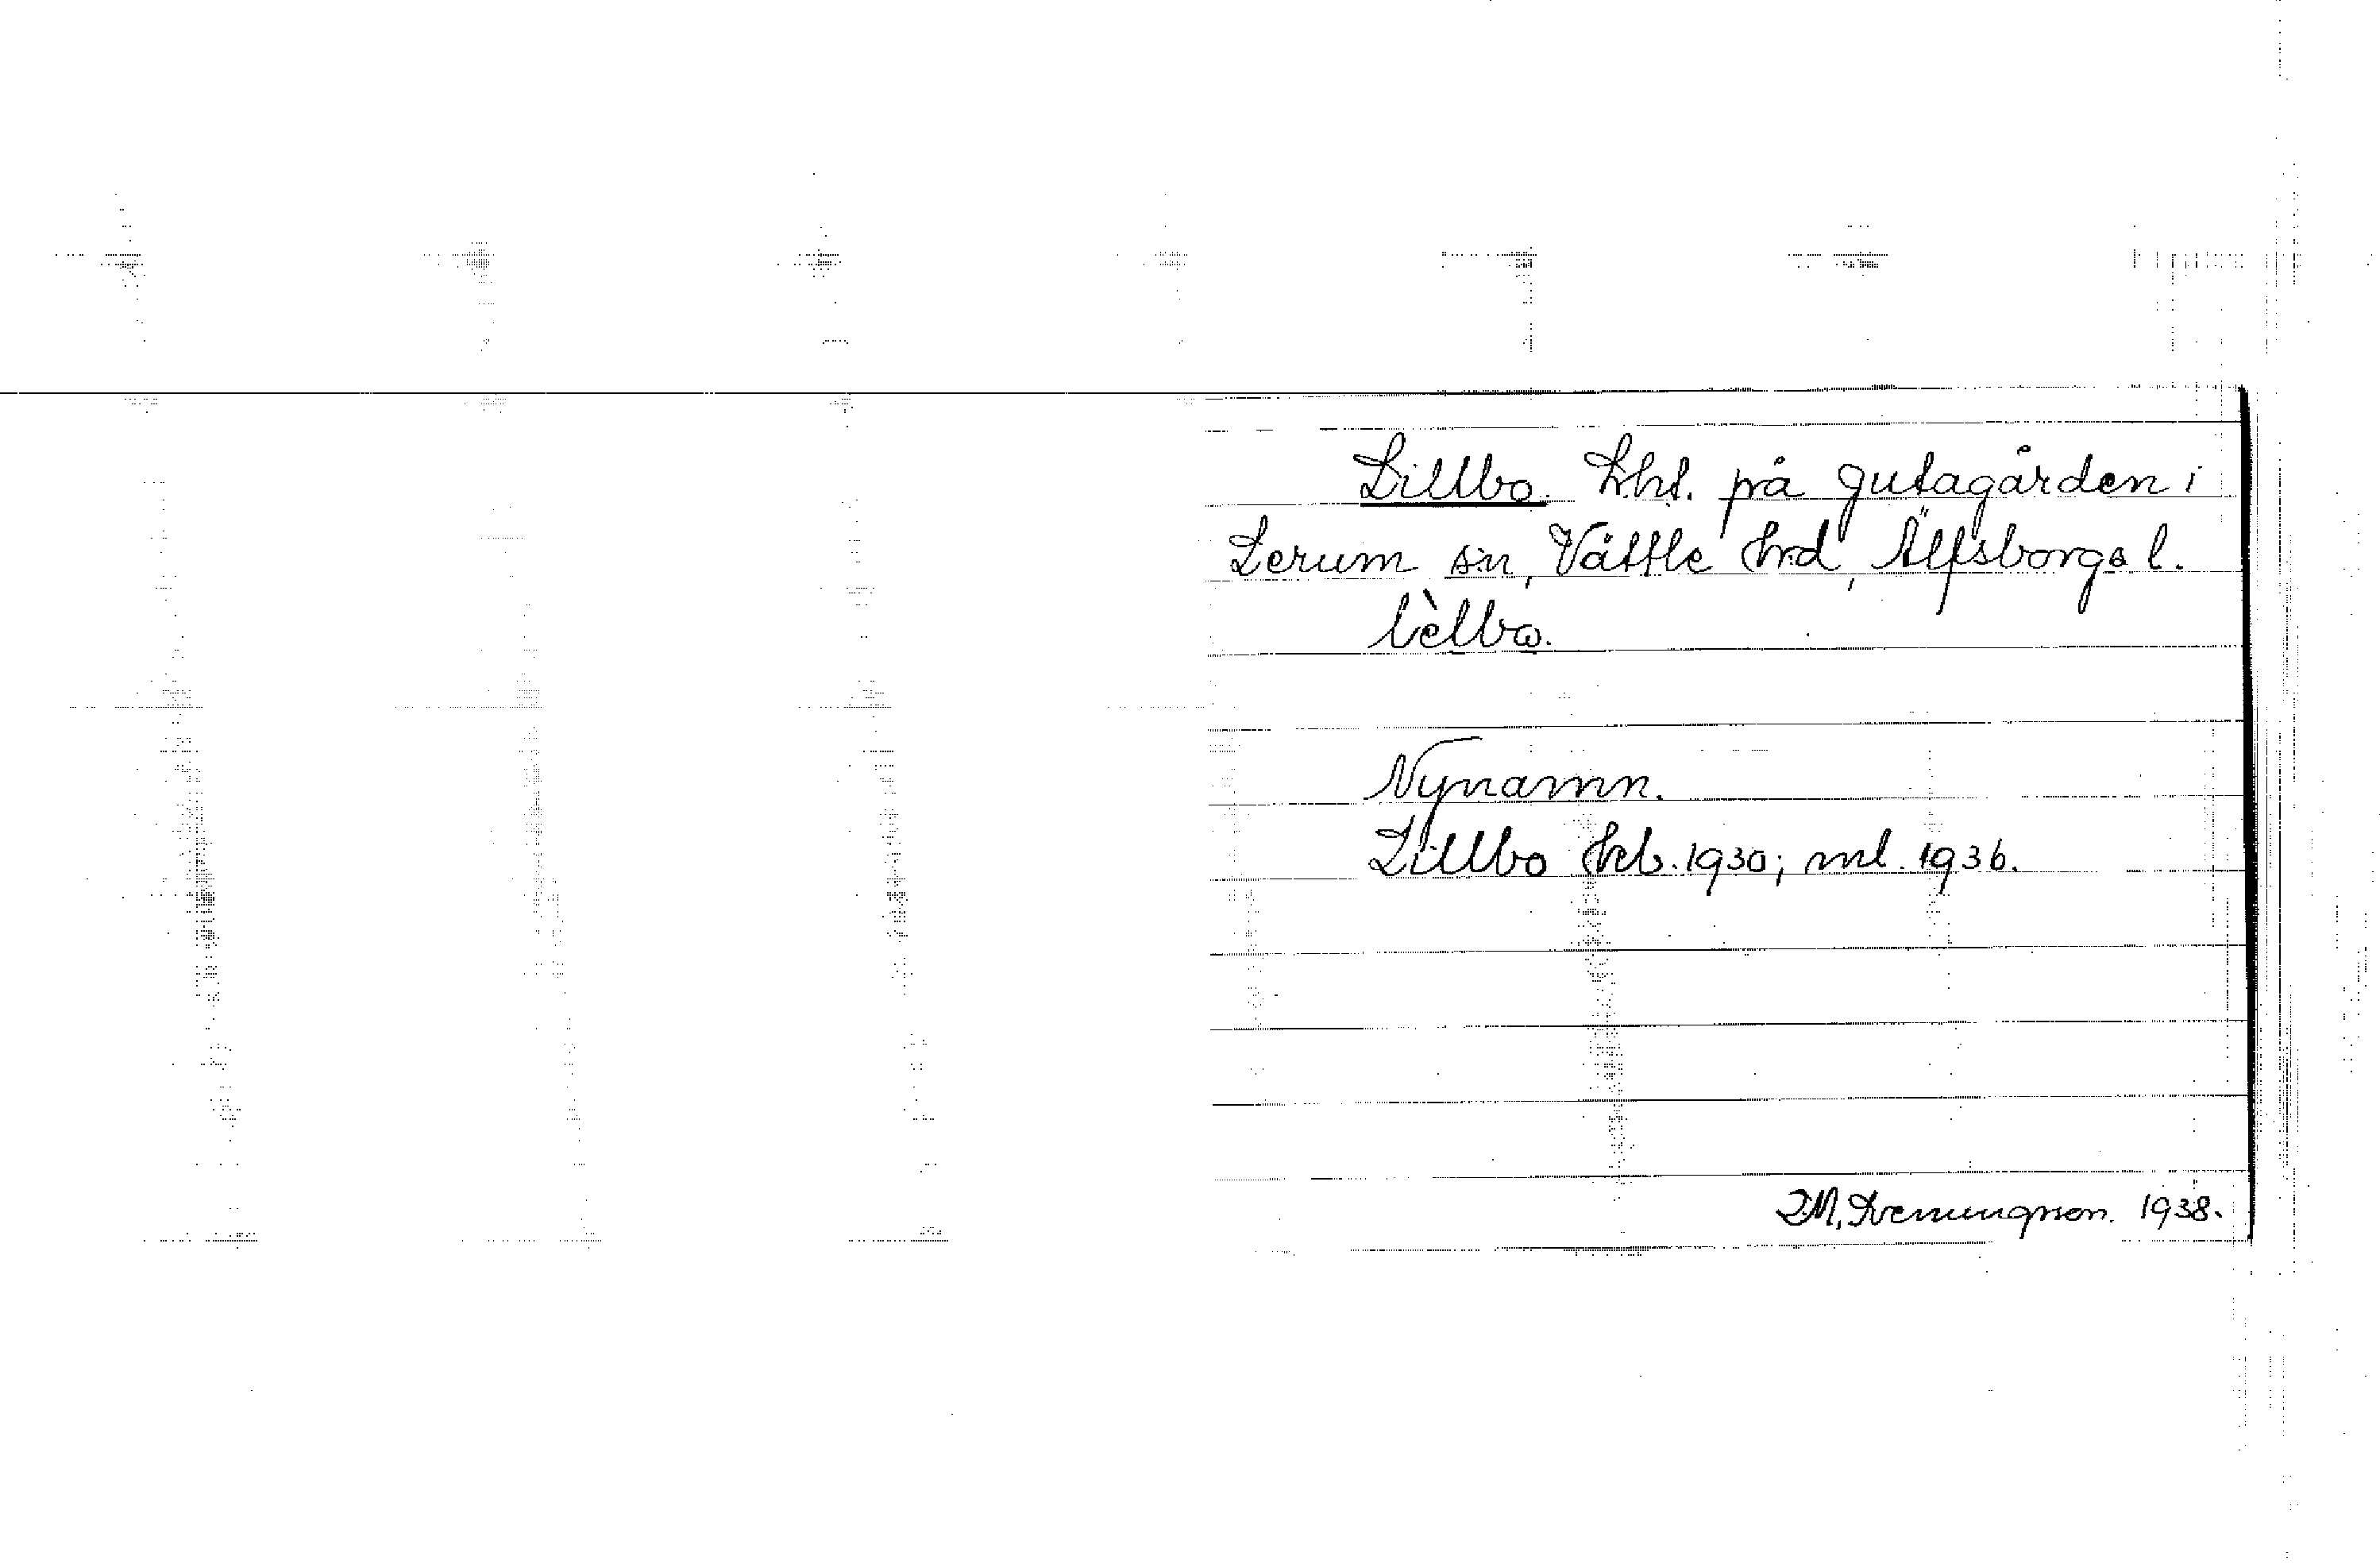 Lillbo. Lht. på gutagården i
Lerum sn, Vättle hrd, Älfsborgs l.
lèlbo.
Nynamn.
Lillbo hfb. 1930; ml. 1936.
1938.